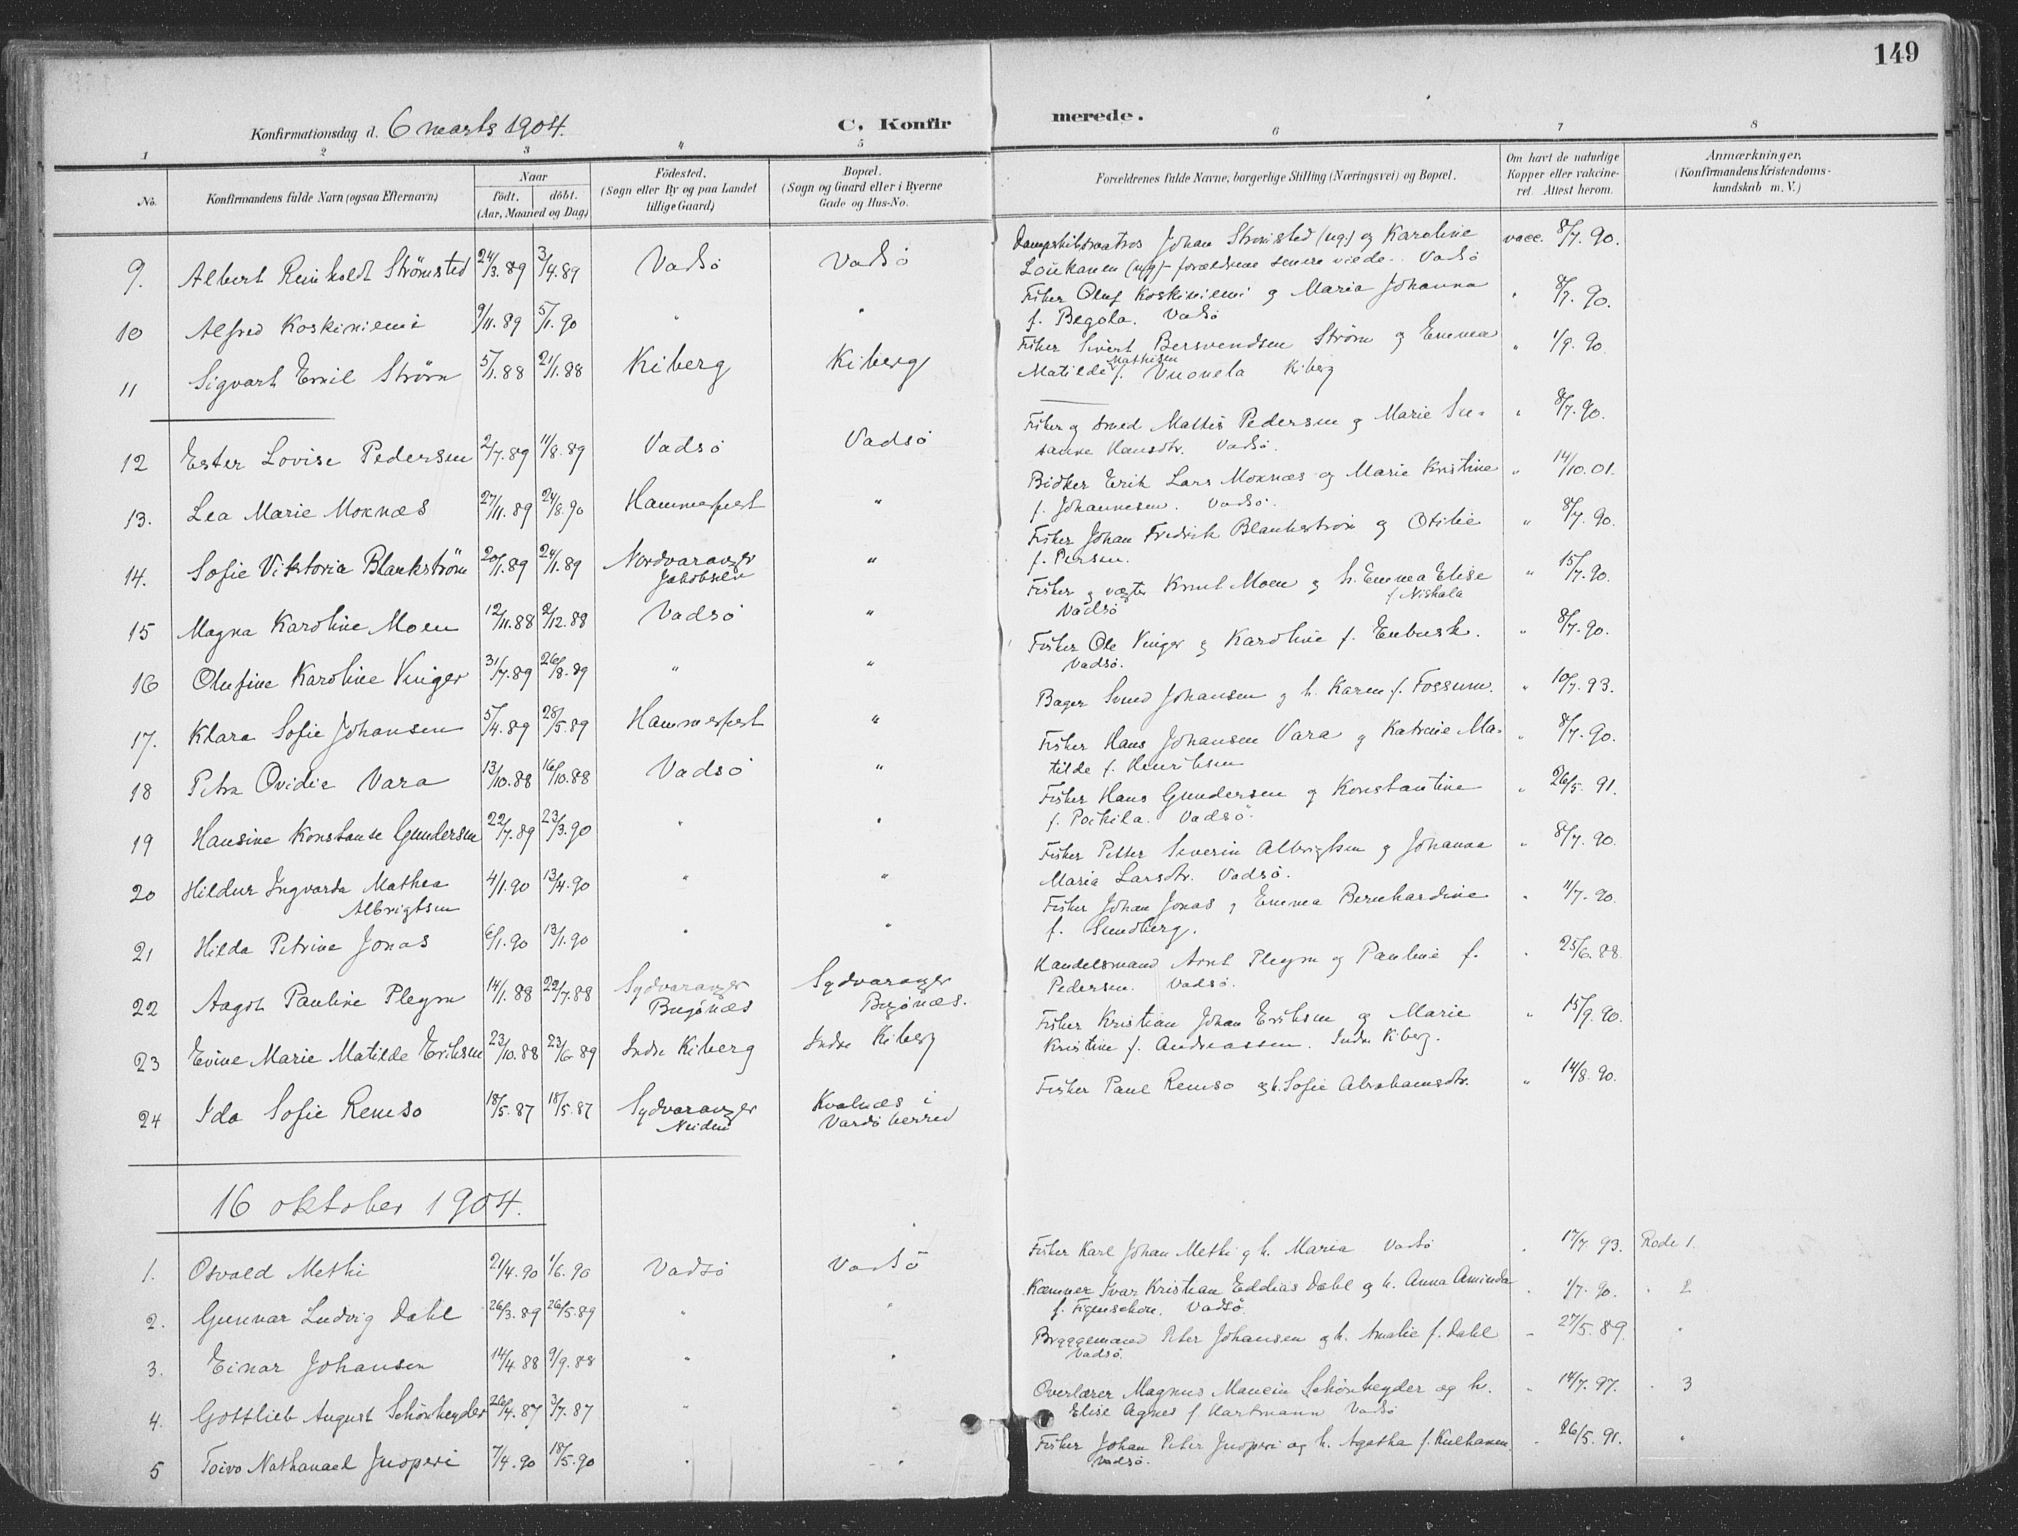 149
Konfirmationsdag d. 6 marts 1904.
C. Konfirmerede.
1 2 3 4 5 6 7 8
No. Konfirmandens fulde Navn (ogsaa Efternavn) Naar födt. döbt. (Aar, Maaned og Dag) Födested. (Sogn eller By og paa Landet tillige Gaard) Bopæl. (Sogn og Gaard eller i Byerne Gade og Hus-No. Forældrenes fulde Navne, borgerlige Stilling (Næringsvei) og Bopæl. Om havt de naturlige Kopper eller vakcineret. Attest herom. Anmærkninger. (Konfirmandens Kristendomskundskab m. V.)
9. Albert Reinholdt Strömsted 24/3.89 3/4.89 Vadsö Vadsö Dampskibsmatros Johan Strömsted (ug.) og Karoline vacc. 8/7.90.
Loukanen (ug) - forældrene senere viede. Vadsö
10 Alfred Koskiniemi 9/11.89 5/1.90 " " Fisker Oluf Koskiniemi og Maria Johanna " 8/7.90.
f. Begola. Vadsö
11 Sigvart Emil Ström 5/1.88 21/1.88 Kiberg Kiberg Fisker Sivert Bersvendsen Ström og Emma " 1/9.90
Matilde Mathisen f. Vuonela Kiberg
12 Ester Lovise Pedersen 2/7.89 11/8.89 Vadsö Vadsö Fisker og smed Mattis Pedersen og Marie Su- " 8/7.90.
sanne Hansdtr. Vadsö.
13. Lea Marie Moknæs 27/11.89 24/8.90 Hammerfest " Bödker Erik Lars Moknæs og Marie Kristine " 14/10.01.
f. Johannesen. Vadsö.
14. Sofie Viktoria Blankström 20/1.89 24/1.89 Nordvaranger Jakobselv " Fisker Johan Fredrik Blankström og Otilie " 8/7.90.
f. Persen.
15 Magna Karoline Moen 12/11.88 2/12.88 Vadsö " Fisker og vægter Knut Moen og h. Emma Elise " 15/7.90.
f. Niskala
Vadsö
16 Olufine Karoline Vinger 31/7.89 26/8.89 " " Fisker Ole Vinger og Karoline f. Enbusk. " 8/7.90.
Vadsö.
17. Klara Sofie Johansen 5/4.89 28/5.89 Hammerfest " Bager Svend Johansen og h. Karen f. Fossum. " 10/7.93.
18 Petra Ovidie Vara 13/10.88 16/10.88 Vadsö " Fisker Hans Johansen Vara og Katrine Ma- " 8/7.90.
tilde f. Henriksen
19 Hansine Konstanse Gundersen 22/7.89 23/3.90 " " Fisker Hans Gundersen og Konstantine " 26/5.91.
f. Poikila. Vadsö.
20 Hildur Ingvarda Mathea Albrigtsen 4/1.90 13/4.90 " " Fisker Petter Severin Albrigtsen og Johanna " 8/7.90.
Maria Larsdtr. Vadsö.
21 Hilda Petrine Jonas 6/1.90 13/1.90 " " Fisker Johan Jonas og Emma Bernhardine " 11/7.90.
f. Sundberg.
22 Aagot Pauline Pleym 14/1.88 22/7.88 Sydvaranger Bugönæs Sydvaranger Bugönæs. Handelsmand Arnt Pleym og Pauline f. " 25/6.88.
Pedersen. Vadsö.
23 Evine Marie Matilde Eriksen 23/10.88 23/6.89 Indre Kiberg Indre Kiberg Fisker Kristian Johan Eriksen og Marie " 15/9.90.
Kristine f. Andreassen. Indre Kiberg.
24 Ida Sofie Remso 18/5.87 18/5.87 Sydvaranger Neiden Kvalnæs i Vardö herred Fisker Paul Remso og h. Sofie Abrahamsdtr. " 14/8.90.
16 oktober 1904.
1. Osvald Methi 21/4.90 1/6.90 Vadsö Vadsö Fisker Karl Johan Methi og h. Maria Vadsö " 17/7.93. Rode 1.
2. Gunnar Ludvig Dahl 26/3.89 26/5.89 " " Kæmner Ivar Kristian Eddias Dahl og h. Anna Aminda " 1/7.90. " 2
f. Figenschou. Vadsö.
3. Einar Johansen 14/4.88 9/9.88 " " Bryggemand Peter Johansen og h. Amalie f. Dahl " 27/5.89. "
Vadsö.
4. Gottlieb August Schönheyder 26/4.87 3/7.87 " " Overlærer Magnus Mancin Schönheyder og h. " 14/7.97. " 3
Elise Agnes f. Hartmann Vadsö
5 Toivo Nathanael Juoperi 7/4.90 18/5.90 " " Fisker Johan Peter Juoperi og h. Agatha f. Kulhanen. " 26/5.91. "
Vadsö.